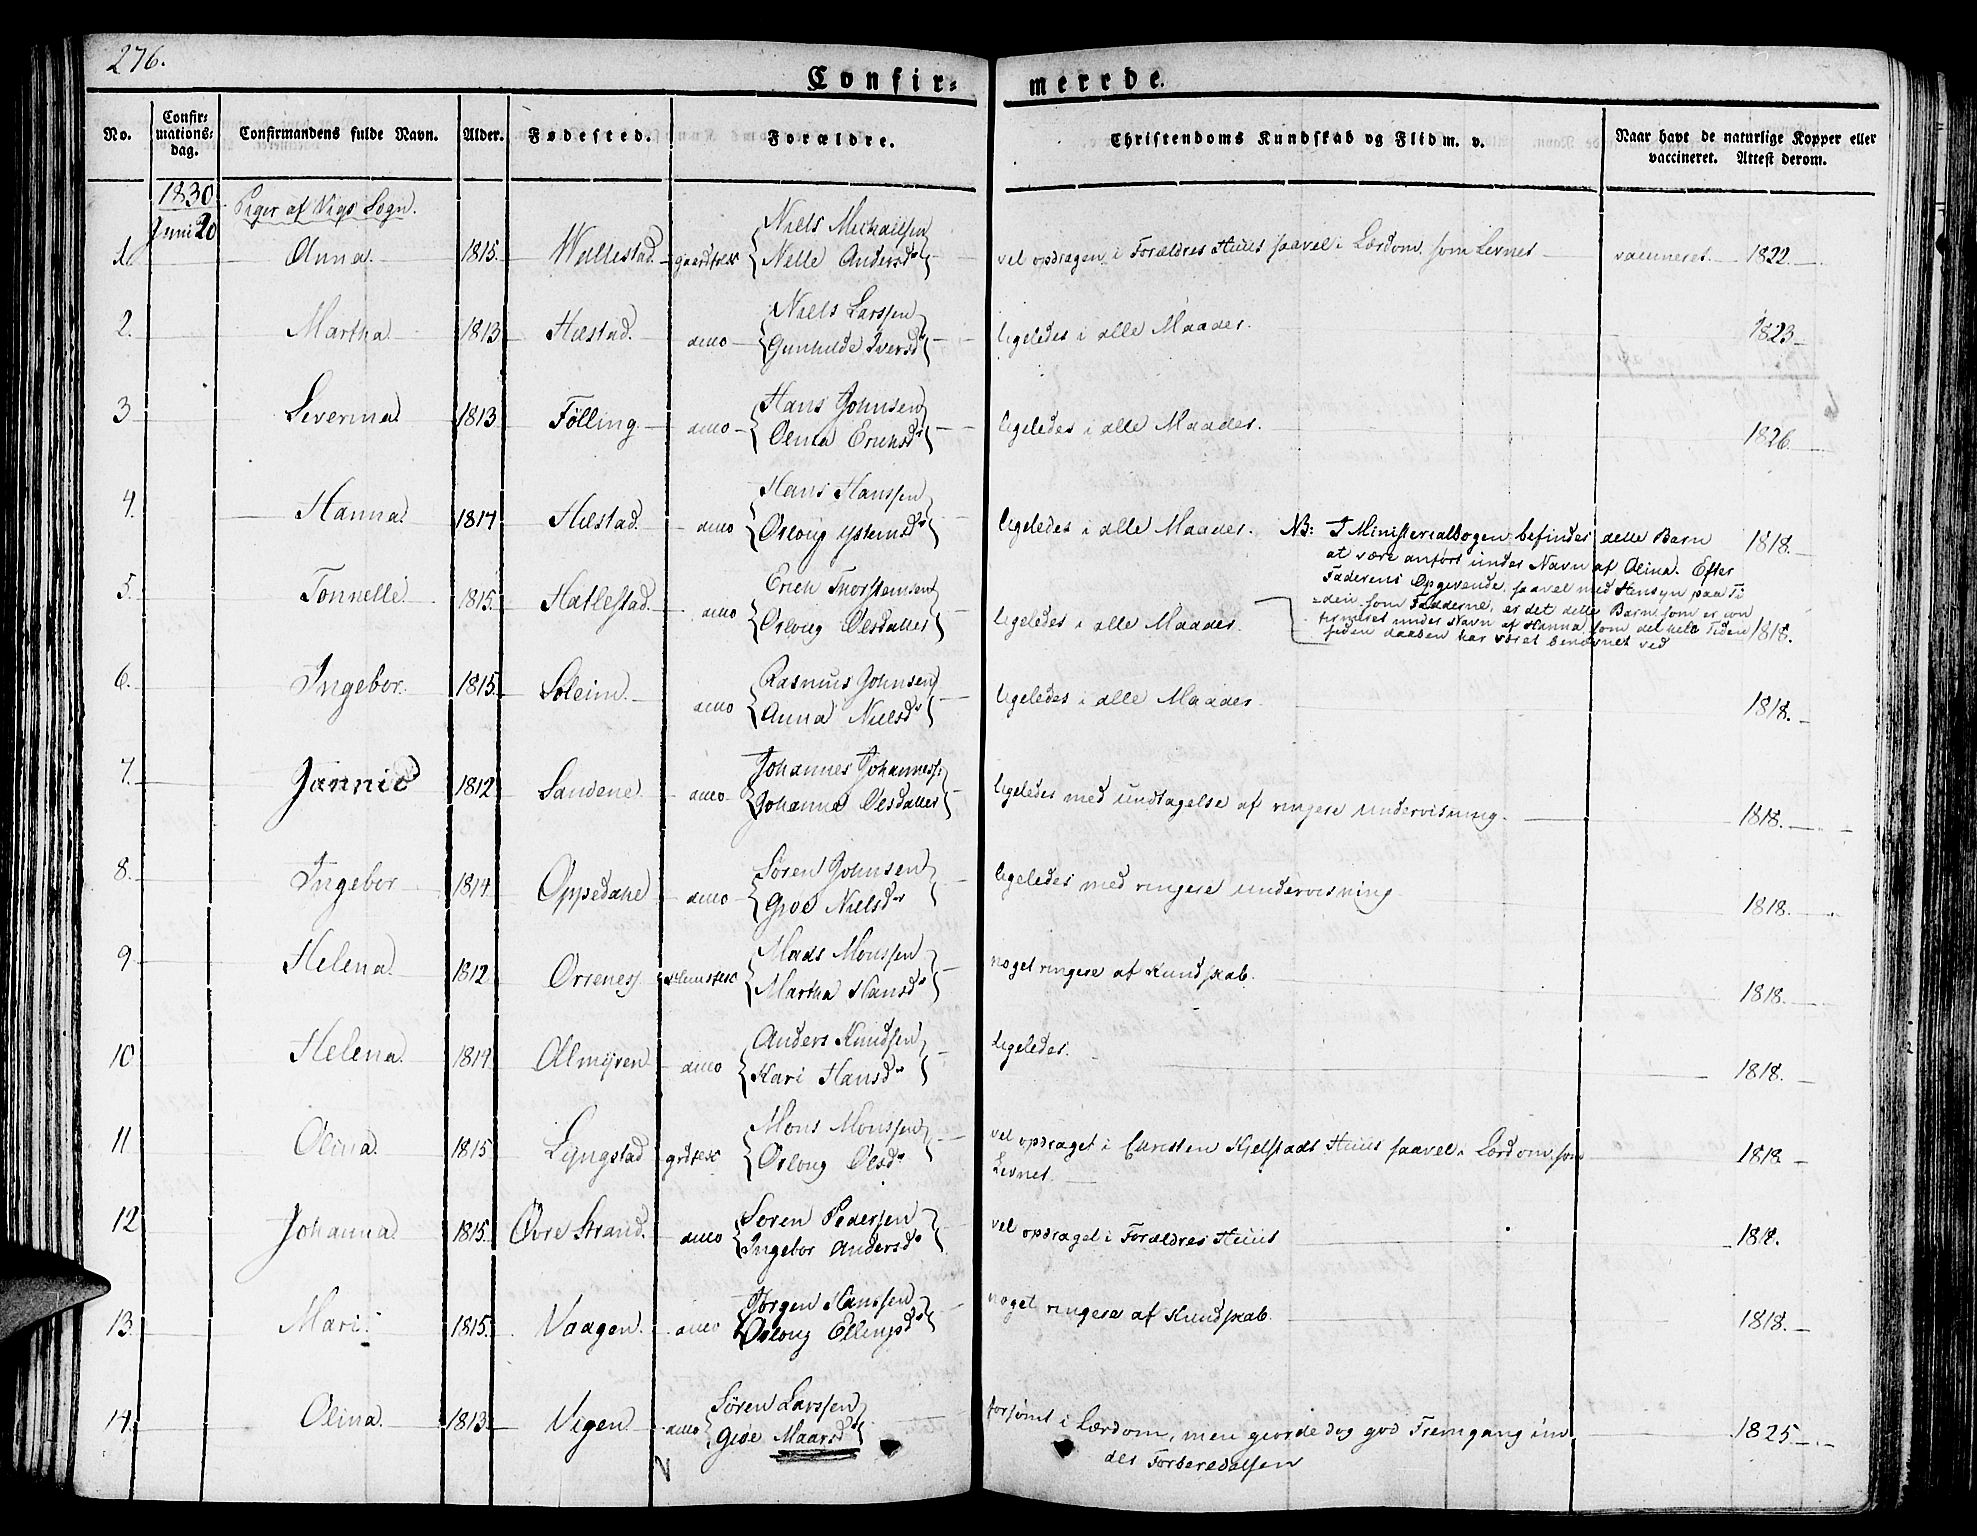 276.
Confir= merede.
No. Confir= mations= dag. Confirmandens fulde Navn. Alder. Fødested. Forældre. Christendoms Kundskab og Flid m. v. Naar havt de naturlige Kopper eller vaccineret. Attest derom.
1830 Piger af Vigs Sogn.
Juni 20
1. Anna 1815. Wallestad gaardfolk Niels Michaelsen
Nille Andersdr vel opdragen i Forældres Huus saavel i Lærdom som Levnet vaccineret 1822.
2. Martha 1813 Hæstad ditto Niels Larssen
Gunhilde Iversdr ligeledes i alle Maader. 1823
3 Severina 1813 Følling ditto Hans Johnsen
Olina Erichsdr ligeledes i alle Maader. 1826.
4. Hanna 1814 Hæstad ditto Hans Hanssen
Oslong Ystensdr ligeledes i alle Maader. 1818.
NB: I Ministerialbogen befindes dette Barn
at være anført under Navn af Olina. Efter
Faderens Opgivende, saavel med Hensyn paa Ti
=den som Fadderne, er det dette Barn som er con
firmeret under Navn af Hanna som det hele Tiden
siden daaben har været benævnet ved
5. Tonnelle 1815. Hatlestad ditto Erich Thorstensen
Oslong Olsdatter ligeledes i alle Maader. 1818.
6. Ingebor 1815. Soleim ditto Rasmus Johnsen
Anna Nielsdr ligeledes i alle Maader. 1818.
7. Jannie 1812 Sandene ditto Johannes Johanness.
Johanna Olsdatter ligeledes med undtagelse af ringere undervisning. 1818.
8. Ingebor 1814 Oppedahl ditto Søren Johnsen
Giøe Nielsdr ligeledes med ringere undervisning 1818.
9 Helena 1812 Orrenes Mads Monssen
Martha Hansdr noget ringere af Kundskab. 1818.
10 Helena 1814 Almyren ditto Anders Knudsen
Kari Hansdr ligeledes. 1818.
11 Olina 1815 Lyngstad grdfolk Mons Monssen
Oslong Olsdr vel opdraget i Christen Kjelstads Huus saavel i Lærdom som
Levnet. 1818
12 Johanna 1815. Øvre Strand ditto Søren Pedersen
Ingebor Andersdr vel opdraget i Forældres Huus 1818.
13. Mari 1815. Vaagen ditto Jørgen Hanssen
Oslong Ellingsdr noget ringere af Kundskab. 1818.
14. Olina 1813. Vigen ditto Søren Larssen
Giøe Maarsdr forsømt i Lærdom, men giorde dog god Fremgang un
der Forberedelsen 1825